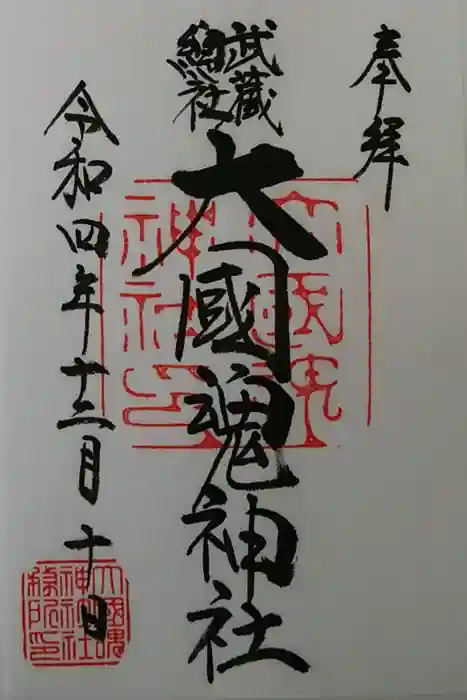 奉拝
武蔵
総社
大國魂神社
令和四年十二月十日
大國魂
神社印
大國魂
神社社
務所印